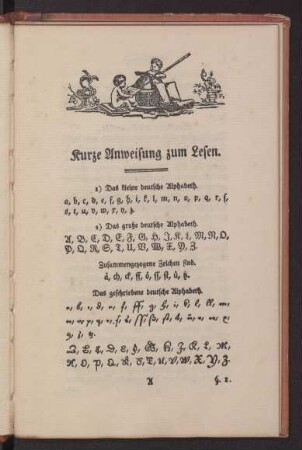 Kurze Anweisung zum Lesen.
1) Das kleine deutsche Alphabeth.
a, b, c, d, e, f, g, h, i, k, l, m, n, o, p, q, r, ſ,
s, t, u, v, w, x, y, z.
2) Das große deutsche Alphabeth.
A, B, C, D, E, F, G, H, J, K, L, M, N, O,
P, Q, R, S, T, U, V, W, X, Y, Z.
Zusammengezogene Zeichen sind.
ä, ch, ck, ff, ö, ſſ, ſt, ü, tz.
Das geschriebene deutsche Alphabeth.
A, B, C, D, E, F, G, H, J, K, L, M,
N, O, P, Q, R, S, T, U, V, W, X, Y, Z.
A
§. 1.